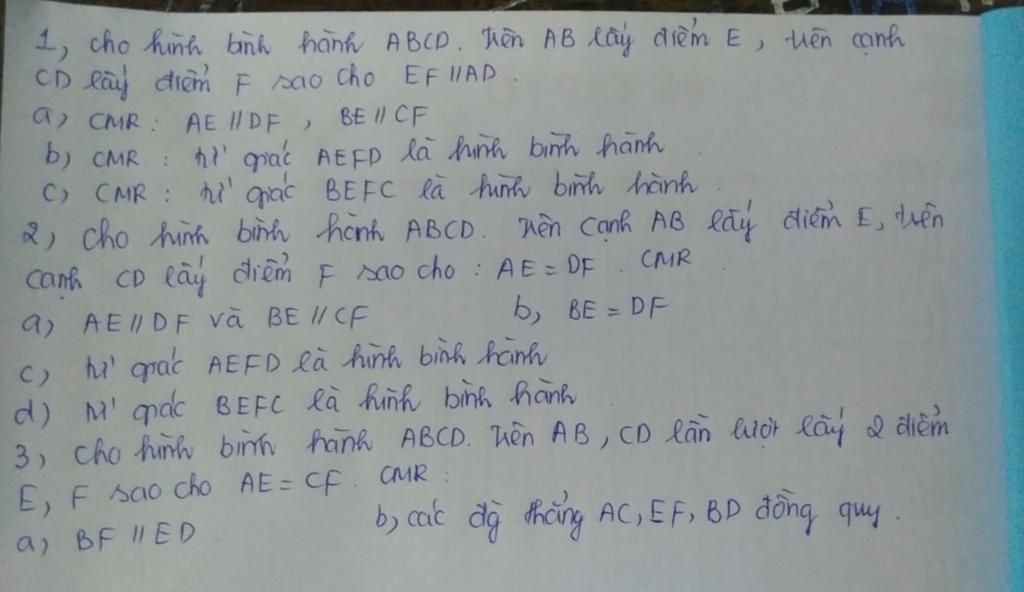 1, cho hình bình hành ABCD. trên AB lấy điểm E, trên cạnh
CD lấy điểm F sao cho EF // AD.
a, CMR: AE // DF, BE // CF
b) CMR: tứ giác AEFD là hình bình hành
c) CMR: tứ giác BEFC là hình bình hành.
2, cho hình bình hành ABCD. trên cạnh AB lấy điểm E, trên
cạnh CD lấy điểm F sao cho: AE = DF. CMR
a) AE // DF và BE // CF b, BE = DF
c) tứ giác AEFD là hình bình hành
d) tứ giác BEFC là hình bình hành
3, cho hình bình hành ABCD. trên AB, CD lần lượt lấy 2 điểm
E, F sao cho AE = CF. CMR:
a) BF // ED b, các đg thẳng AC, EF, BD đồng quy.